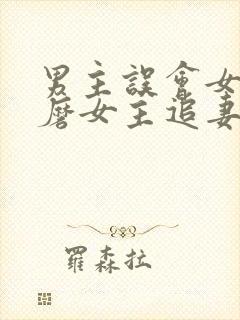 男主誤會女
磨女主追妻
羅森拉